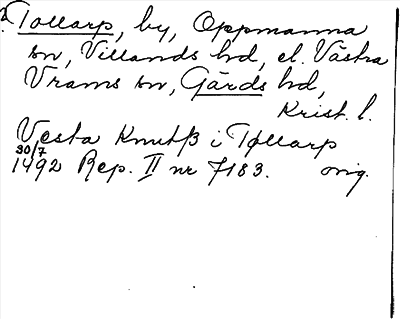 Tollarp, by, Oppmanna
sn, Villands hd, el. Västra
Vrams sn, Gärds hd,
Krist. l.
Vesta Knutß i Tøllarp
30/7
1492 Rep. II nr 7183. orig.